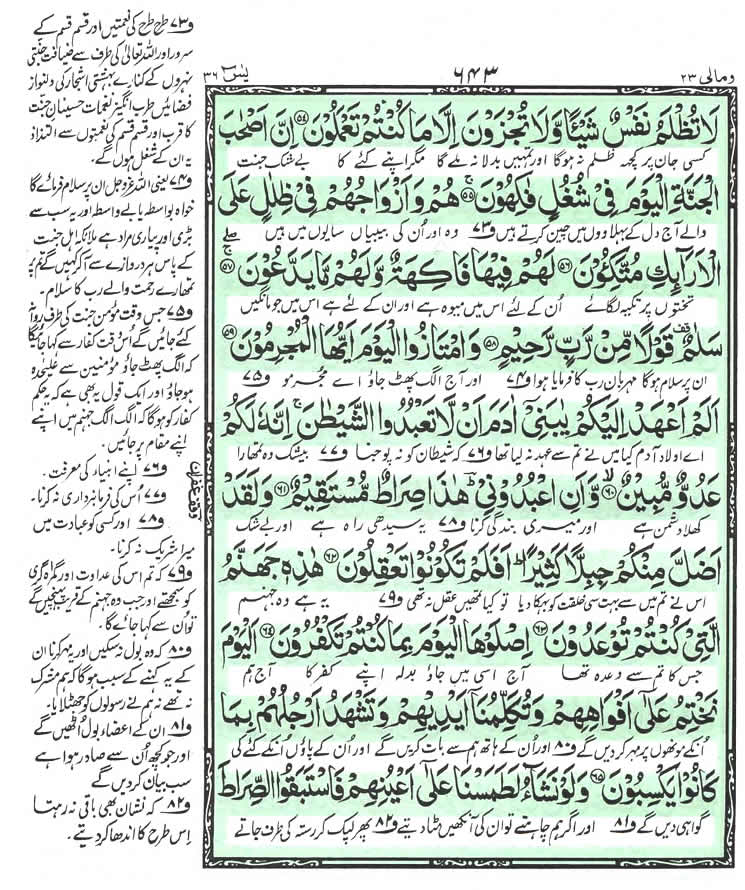 ومالی ۲۳
۶۴۳
یٰسٓ ۳۶
لَا تُظْلَمُ نَفْسٌ شَیْـًٔا وَّلَا تُجْزَوْنَ اِلَّا مَا كُنْتُمْ تَعْمَلُوْنَ ﴿۵۴﴾ اِنَّ اَصْحٰبَ
کسی جان پر کچھ ظلم نہ ہوگا اور تمہیں بدلا نہ ملے گا مگر اپنے کئے کا بے شک جنت
الْجَنَّةِ الْیَوْمَ فِیْ شُغُلٍ فٰكِهُوْنَ ﴿۵۵﴾ هُمْ وَاَزْوَاجُهُمْ فِیْ ظِلٰلٍ عَلَی
والے آج دل کے بہلاووں میں چین کرتے ہیں و۷۳ وہ اور اُن کی بیبیاں سایوں میں ہیں
الْاَرَآىِٕكِ مُتَّكِـُٔوْنَ ﴿۵۶﴾ لَهُمْ فِیْهَا فَاكِهَةٌ وَّلَهُمْ مَّا یَدَّعُوْنَ ﴿۵۷﴾
تختوں پر تکیہ لگائے اُن کے لئے اس میں میوہ ہے اور ان کے لئے ہے اس میں جو مانگیں
سَلٰمٌ قَوْلًا مِّنْ رَّبٍّ رَّحِیْمٍ ﴿۵۸﴾ وَامْتَازُوا الْیَوْمَ اَیُّهَا الْمُجْرِمُوْنَ ﴿۵۹﴾
ان پر سلام ہوگا مہربان رب کا فرمایا ہوا و۷۴ اور آج الگ پھٹ جاؤ اے مجرمو و۷۵
اَلَمْ اَعْهَدْ اِلَیْكُمْ یٰبَنِیْۤ اٰدَمَ اَنْ لَّا تَعْبُدُوا الشَّیْطٰنَ ۚ اِنَّهٗ لَكُمْ
اے اولاد آدم کیا میں نے تم سے عہد نہ لیا تھا و۷۶ کہ شیطان کو نہ پوجنا و۷۷ بیشک وہ تمہارا
عَدُوٌّ مُّبِیْنٌ ﴿۶۰﴾ وَّاَنِ اعْبُدُوْنِیْ ؕ هٰذَا صِرَاطٌ مُّسْتَقِیْمٌ ﴿۶۱﴾ وَلَقَدْ
کھلا دشمن ہے اور میری بندگی کرنا و۷۸ یہ سیدھی راہ ہے اور بے شک
اَضَلَّ مِنْكُمْ جِبِلًّا كَثِیْرًا ؕ اَفَلَمْ تَكُوْنُوْا تَعْقِلُوْنَ ﴿۶۲﴾ هٰذِهٖ جَهَنَّمُ
اس نے تم میں سے بہت سی خلقت کو بہکا دیا تو کیا تمھیں عقل نہ تھی و۷۹ یہ ہے وہ جہنم
الَّتِیْ كُنْتُمْ تُوْعَدُوْنَ ﴿۶۳﴾ اِصْلَوْهَا الْیَوْمَ بِمَا كُنْتُمْ تَكْفُرُوْنَ ﴿۶۴﴾ اَلْیَوْمَ
جس کا تم سے وعدہ تھا آج اسی میں جاؤ بدلہ اپنے کفر کا آج ہم
نَخْتِمُ عَلٰۤی اَفْوَاهِهِمْ وَتُكَلِّمُنَاۤ اَیْدِیْهِمْ وَتَشْهَدُ اَرْجُلُهُمْ بِمَا
اُنکے مونھوں پر مہر کر دیں گے و۸۰ اور اُن کے ہاتھ ہم سے بات کریں گے اور اُن کے پاؤں اُنکے کئے کی
كَانُوْا یَكْسِبُوْنَ ﴿۶۵﴾ وَلَوْ نَشَآءُ لَطَمَسْنَا عَلٰۤی اَعْیُنِهِمْ فَاسْتَبَقُوا الصِّرَاطَ
گواہی دیں گے و۸۱ اور اگر ہم چاہتے تو ان کی آنکھیں مٹا دیتے و۸۲ پھر لپک کر رستہ کی طرف جاتے
و۷۳ طرح طرح کی نعمتیں اور قسم قسم کے
سرور اور اللہ تعالیٰ کی طرف سے ضیافت جنتی
نہروں کے کنارے بہشتی اشجار کی دلنواز
فضائیں طرب انگیز نغمات حسینان جنت
کا قرب اور قسم قسم کی نعمتوں سے التذاذ
یہ ان کے شغل ہوں گے۔
و۷۴ یعنی اللہ عزوجل ان پر سلام فرمائے گا
خواہ بواسطہ یا بے واسطہ اور یہ سب سے
بڑی اور پیاری مراد ہے ملائکہ اہل جنت
کے پاس ہر دروازے سے آکر کہیں گے تم پر
تمھارے رحمت والے رب کا سلام۔
و۷۵ جس وقت مومن جنت کی طرف روانہ
کئے جائیں گے اُس وقت کفار سے کہا جائیگا
کہ الگ پھٹ جاؤ مومنین سے علیٰحدہ
ہو جاؤ اور ایک قول یہ بھی ہے کہ یہ حکم
کفار کو ہوگا کہ الگ الگ جہنم میں اپنے
اپنے مقام پر جائیں۔
و۷۶ اپنے انبیاء کی معرفت۔
و۷۷ اُس کی فرمانبرداری نہ کرنا۔
و۷۸ اور کسی کو عبادت میں
میرا شریک نہ کرنا۔
و۷۹ کہ تم اس کی عداوت اور گمراہ گری
کو سمجھتے اور جب وہ جہنم کے قریب پہنچیں گے
تو اُن سے کہا جائے گا۔
و۸۰ کہ وہ بول نہ سکیں اور یہ مہر کرنا ان
کے یہ کہنے کے سبب ہوگا کہ ہم مشرک
نہ تھے نہ ہم نے رسولوں کو جھٹلایا۔
و۸۱ ان کے اعضاء بول اُٹھیں گے
اور جو کچھ اُن سے صادر ہوا ہے
سب بیان کر دیں گے
و۸۲ کہ نشان بھی باقی نہ رہتا
اِس طرح کا اندھا کر دیتے۔
وقف غفران